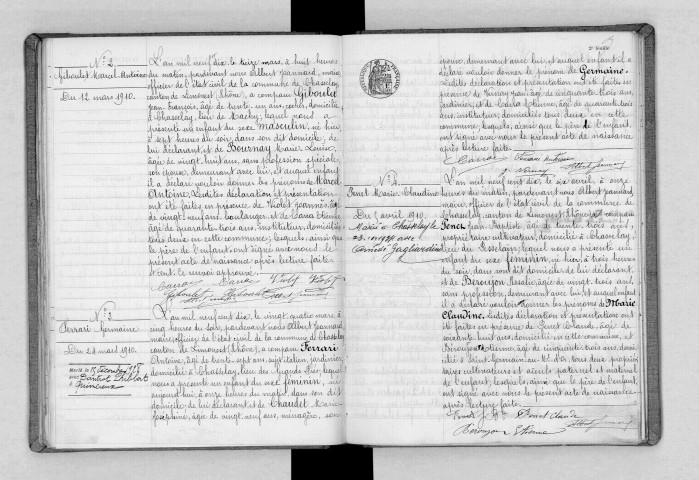 N° 2
Giboulet Marcel Antoine
Du 12 mars 1910.
L'an mil neuf dix, le treize mars, à huit heures
du matin, pardevant nous Albert Jeannard, maire
officier de l'état civil de la commune de Chasselay
canton de Limonest (Rhône), a comparu Giboulet
Jean François, âgé de trente un ans, cocher, domicilié
à Chasselay, lieu de Machy; lequel nous a
présenté un enfant du sexe masculin, né hier,
à sept heures du soir, dans son dit domicile, de
lui déclarant, et de Bournay Marie Louise
âgée de vingt huit ans, sans profession spéciale,
son épouse, demeurant avec lui, et auquel enfant
il a déclaré vouloir donner les prénoms de Marcel
Antoine. Lesdites déclaration et présentation
ont été faites en présence de Violet Joannès, âgé
de vingt neuf ans, boulanger, et de
âgé de quarante trois ans, instituteur, domiciliés
tous deux en cette commune; lesquels, ainsi que
le père de l'enfant, ont signé avec nous le
présent acte de naissance après lecture faite
N° 3
Ferrari Germaine
Du 24 mars 1910.
L'an mil neuf dix, le vingt quatre mars, à
cinq heures du soir, pardevant nous Albert Jeannard
maire, officier de l'état civil de la commune de Chasselay
canton de Limonest (Rhône), a comparu Ferrari
Antoine, âgé de trente sept ans, sujet italien, jardinier,
domicilié à Chasselay, lieu des; lequel
nous a présenté un enfant du sexe féminin, né
aujourd'hui, à onze heures du matin, dans son dit
domicile, de lui déclarant et de Chaudet Marie
Joséphine, âgée de vingt neuf ans, ménagère, son
2e feuille
épouse, demeurant avec lui, et auquel enfant il a
déclaré vouloir donner le prénom de Germaine.
Lesdites déclaration et présentation ont été faites en
présence de Jean, âgé de cinquante trois ans,
jardinier, et de Antoine, âgé de quarante trois
ans, instituteur, domiciliés tous deux en cette
commune; lesquels, ainsi que le père de l'enfant,
ont signé avec nous le présent acte de naissance
après lecture faite.
N° 4
Penet Marie Claudine
Du 5 avril 1910.
Mariée à Chasselay le
avec
Gagliardini
L'an mil neuf cent dix, le six avril, à onze
heures du matin, pardevant nous Albert Jeannard,
maire, officier de l'état civil de la commune de
Chasselay, canton de Limonest (Rhône), a comparu
Penet Jean Baptiste, âgé de trente trois ans,
propriétaire cultivateur, domicilié à Chasselay,
lieu du; lequel nous a présenté un
enfant du sexe féminin, né hier, à trois heures
du soir, dans son dit domicile, de lui déclarant,
et de Berouzon Rosalie, âgée de vingt trois ans,
sans profession, demeurant avec lui, et auquel enfant
il a déclaré vouloir donner les prénoms de Marie
Claudine. Lesdites déclaration et présentation ont
été faites en présence de Penet Claude, âgé de
soixante huit ans, domicilié en cette commune, et
Berouzon Etienne, âgé de cinquante trois ans, domi
cilié à Saint Germain au Mt d'or, tous deux propriétaires
cultivateurs et aïeuls paternel et maternel
de l'enfant, lesquels, ainsi que le père de l'enfant,
ont signé avec nous le présent acte de naissance
après lecture faite.
Penet Claude
Berouzon Etienne